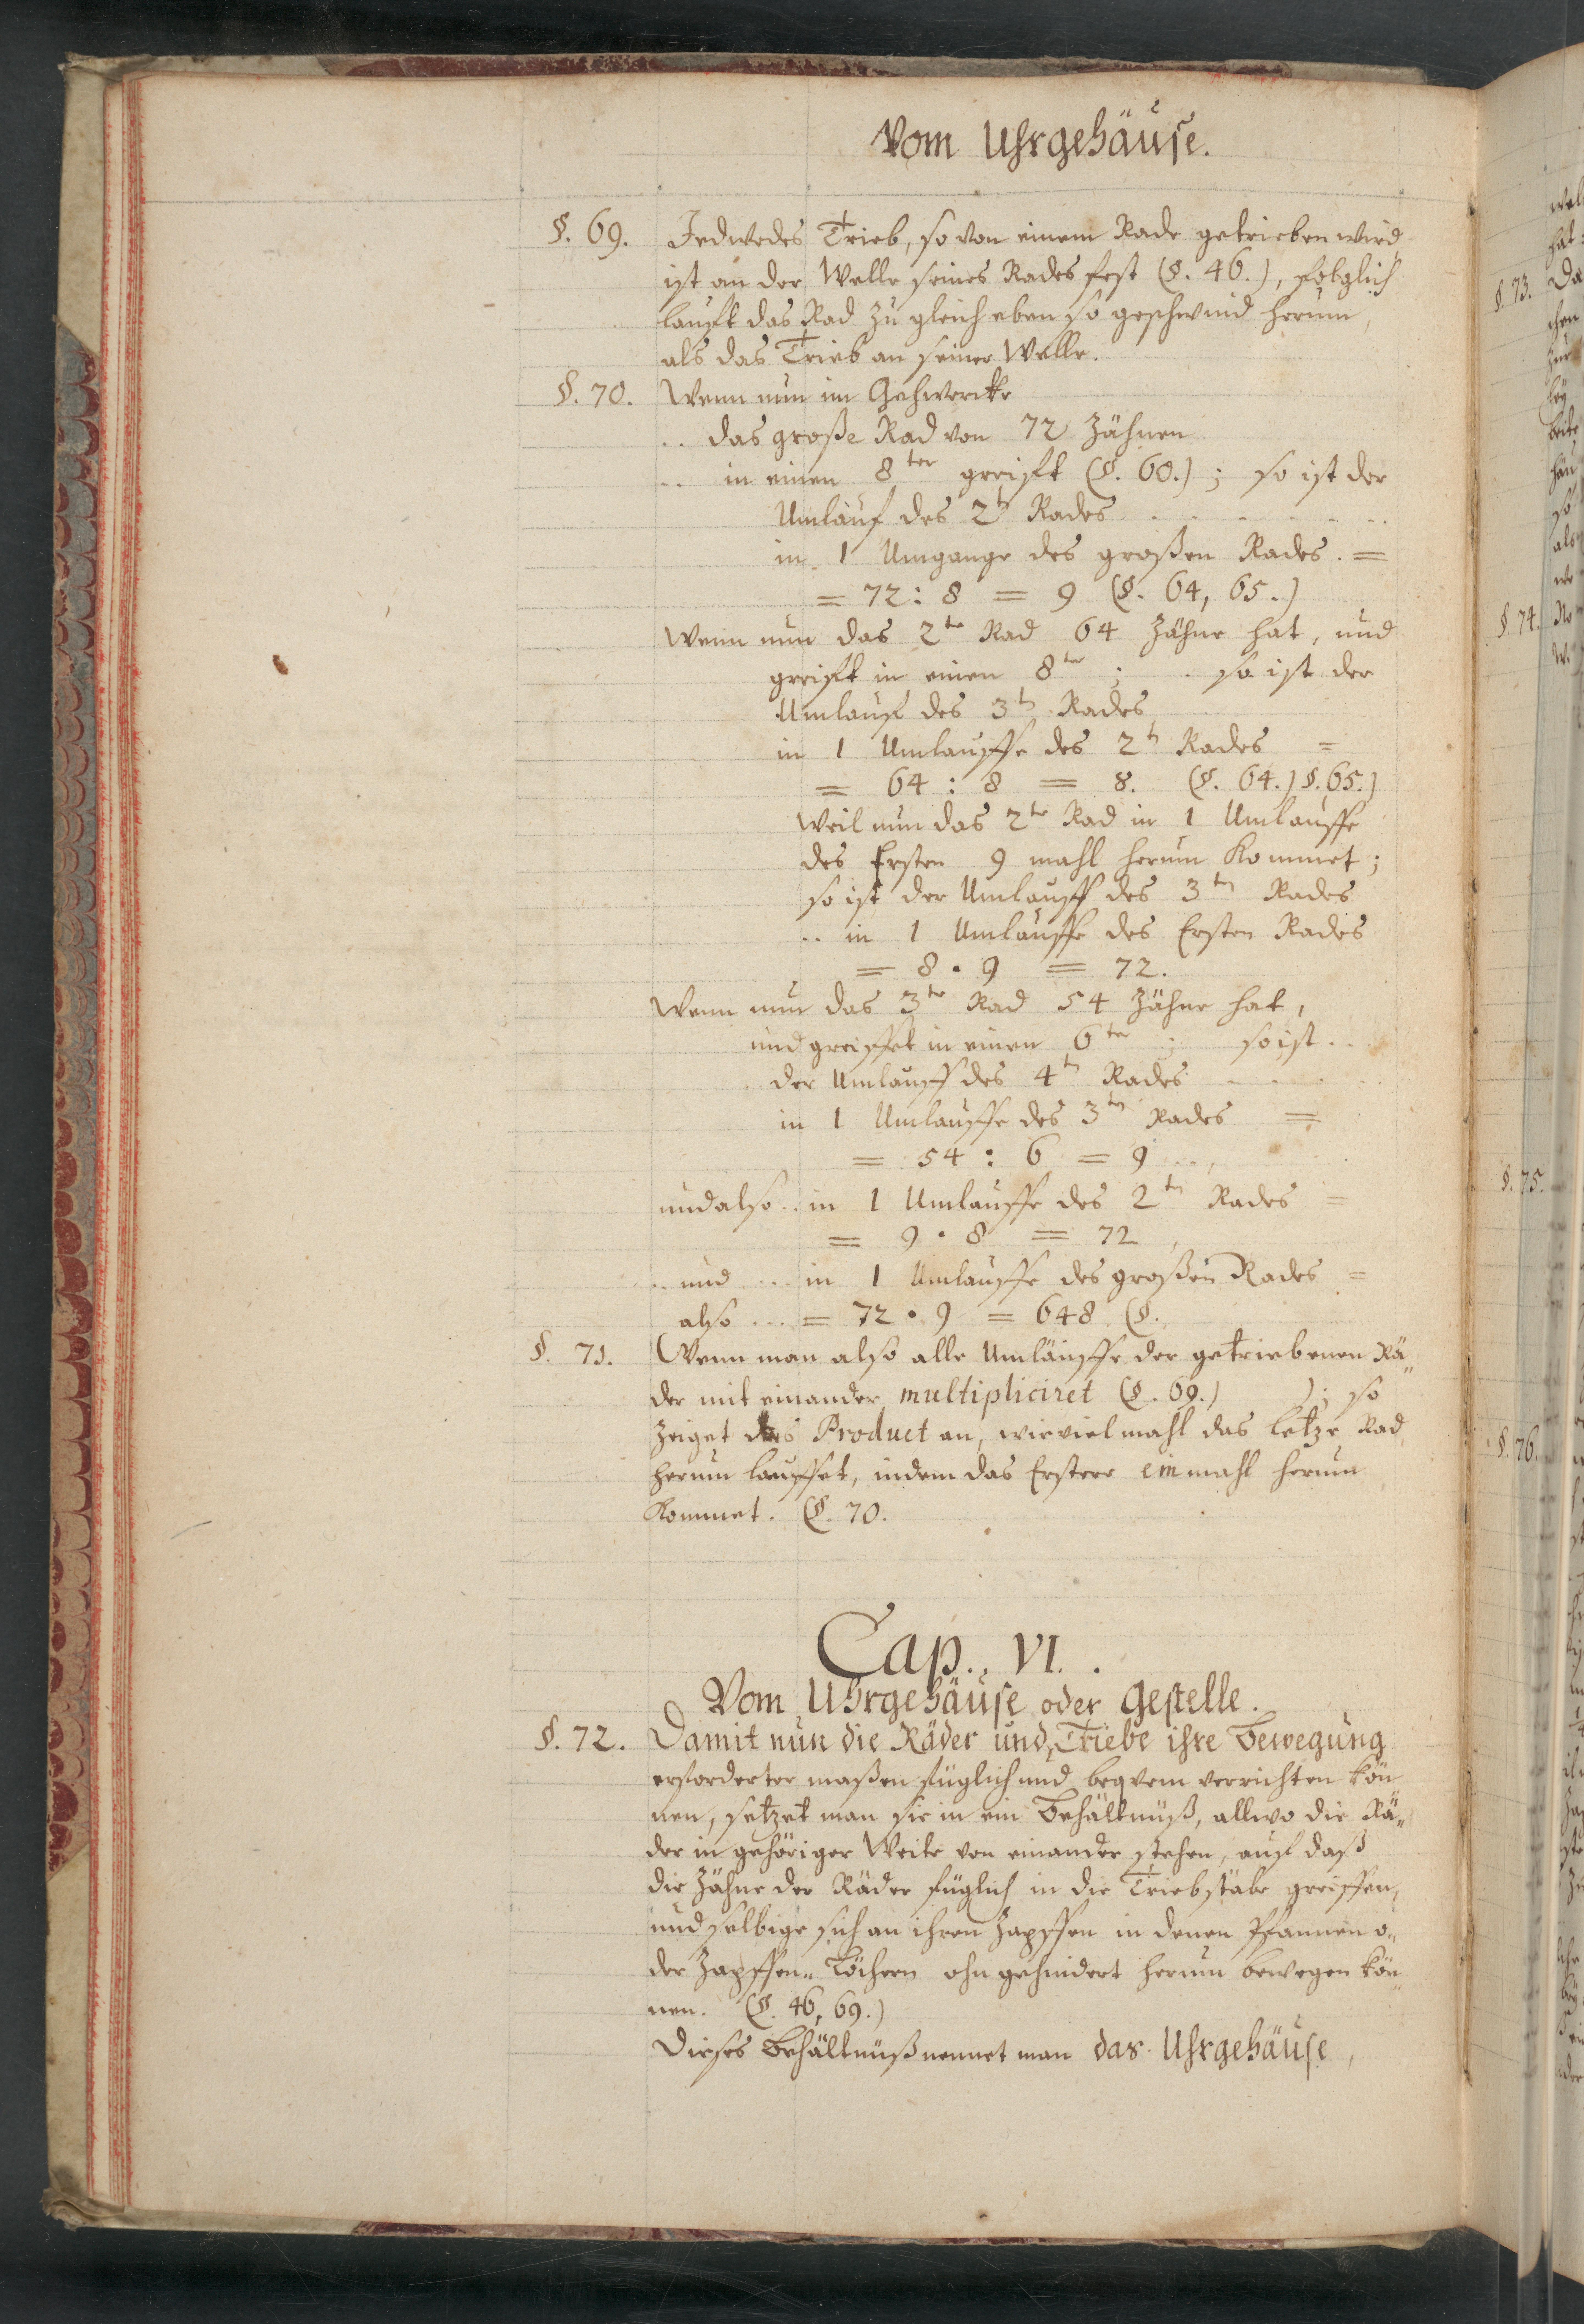 Vom Uhrgehäuse.
§. 69. Jedwedes Trieb, so von einem Rade getrieben wird
ist an der Welle seines Rades fest (§. 46.), folglich
laufft das Rad zu gleich eben so geschwind herum,
als das Trieb an seiner Welle.
§. 70. Wenn nun im Gehwercke
.. das große Rad von 72 Zähnen
.. in einen 8ter greifft (§. 60.); so ist der
Umlauf des 2tn Rades . . . . . .
in 1 Umgange des großen Rades. =
= 72 : 8 = 9 (§. 64, 65.)
Wenn nun das 2te Rad 64 Zähne hat, und
greifft in einen 8ter ; . so ist der
Umlauf des 3tn Rades,
in 1 Umlauffe des 2tn Rades =
= 64 : 8 = 8. (§. 64.) §. 65.)
Weil nun das 2te Rad in 1 Umlauffe
des Ersten 9 mahl herum kommet;
so ist der Umlauff des 3tn Rades
.. in 1 Umlauffe des Ersten Rades
= 8 • 9 = 72.
Wenn nun das 3te Rad 54 Zähne hat,
und greiffet in einen 6ter ; so ist ..
der Umlauff des 4tn Rades . . .
in 1 Umlauffe des 3tn Rades =
= 54 : 6 = 9 ..,
und also .. in 1 Umlauffe des 2tn Rades =
= 9 • 8 = 72,
.. und .. in 1 Umlauffe des großen Rades =
also ... = 72 • 9 = 648. (§.
§. 71. Wenn man also alle Umläuffe der getriebenen Rä„
der mit einander multipliciret (§. 69.) ); so
zeiget das Product an, wieviel mahl das letze Rad
herum lauffet, indem das Erstere einmahl herum
kommet. (§. 70.
Cap. VI.
Vom Uhrgehäuse oder Gestelle.
§. 72. Damit nun die Räder und Triebe ihre Bewegung
erforderter maßen füglich und beqvem verrichten kön
nen, setzet man sie in ein Behältnüß, allwo die Rä„
der in gehöriger Weite von einander stehen, auf daß
die Zähne der Räder füglich in die Triebstäbe greiffen,
und selbige sich an ihren Zapffen in denen Pfannen o„
der Zapffen„ Löchern ohn gehindert herum bewegen kön„
nen. (§. 46, 69.)
Dieses Behältnüß nennet man das Uhrgehäuse,
§. 73.
§. 74.
§. 75.
§. 76.